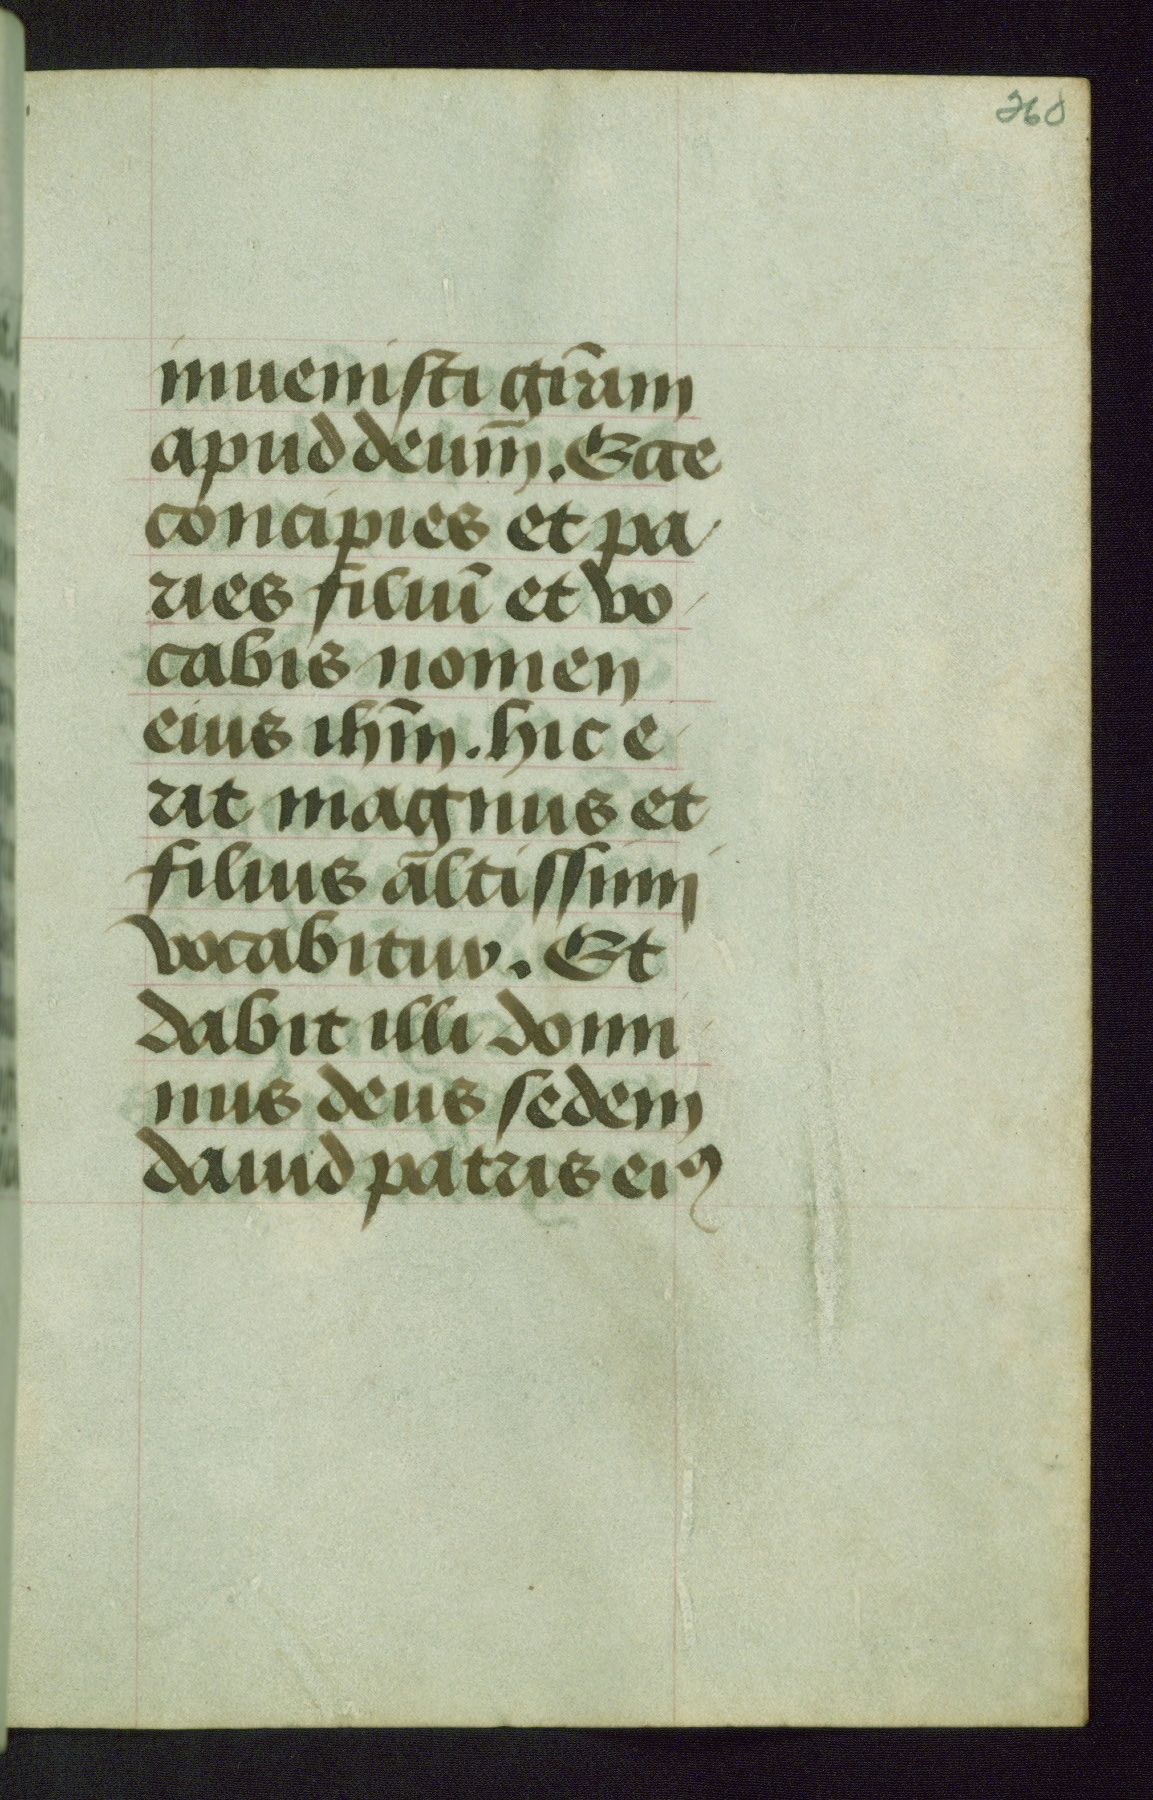 260
inuenisti gr̄am
apud deum̄. Ecce
concipies et pa
ries filiū et vo
cabis nomen
eius ihm̄. hic e
rit magnus et
filius altissimi
vocabitur. Et
dabit illi domi
nus deus sedem
dauid patris eiꝰ